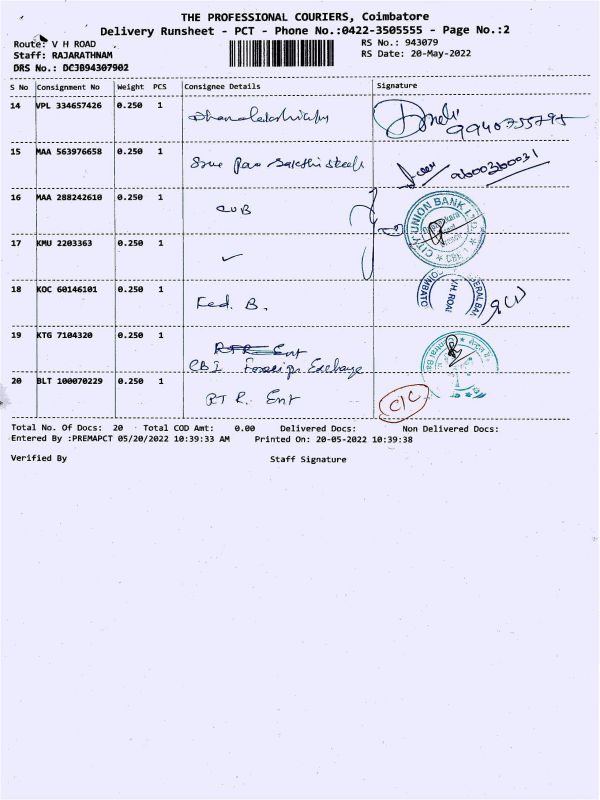 THE PROFESSIONAL COURIERS, Coimbatore
Delivery Runsheet - PCT - Phone No.:0422-3505555 - Page No.:2
Route: V H ROAD RS No.: 943079
Staff: RAJARATHNAM RS Date: 20-May-2022
DRS No.: DCJB94307902
S No Consignment No Weight PCS Consignee Details Signature
14 VPL 334657426 0.250 1 Dhanalakshmi 9940755795
15 MAA 563976658 0.250 1 Sakthi steels 9600360031
16 MAA 288242610 0.250 1 CUB CITY UNION BANK LTD
17 KMU 2203363 0.250 1 ✓
18 KOC 60146101 0.250 1 Fed. B. V.H. ROAD
19 KTG 7104320 0.250 1 RTR Ent
CBI Foreign Exchange
20 BLT 100070229 0.250 1 RTR. Ent C/C
Total No. Of Docs: 20 Total COD Amt: 0.00 Delivered Docs: Non Delivered Docs:
Entered By :PREMAPCT 05/20/2022 10:39:33 AM Printed On: 20-05-2022 10:39:38
Verified By Staff Signature